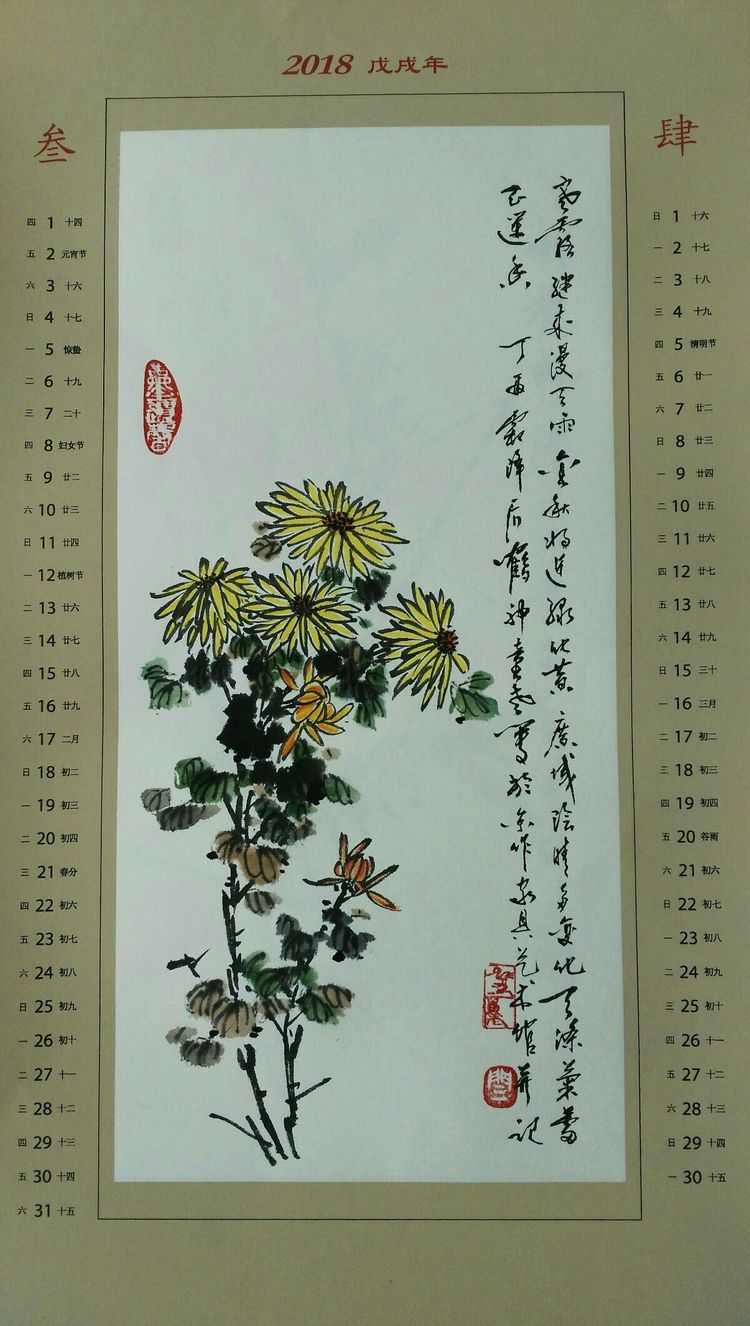 2018 戊戌年
叁
四 1 十四
五 2 元宵节
六 3 十六
日 4 十七
一 5 惊蛰
二 6 十九
三 7 二十
四 8 妇女节
五 9 廿二
六 10 廿三
日 11 廿四
一 12 植树节
二 13 廿六
三 14 廿七
四 15 廿八
五 16 廿九
六 17 二月
日 18 初二
一 19 初三
二 20 初四
三 21 春分
四 22 初六
五 23 初七
六 24 初八
日 25 初九
一 26 初十
二 27 十一
三 28 十二
四 29 十三
五 30 十四
六 31 十五
漫天雨金秋将近绿化黄
丁酉霜降后鹤神童老写于京作家具艺术馆并记
肆
日 1 十六
一 2 十七
二 3 十八
三 4 十九
四 5 清明节
五 6 廿一
六 7 廿二
日 8 廿三
一 9 廿四
二 10 廿五
三 11 廿六
四 12 廿七
五 13 廿八
六 14 廿九
日 15 三十
一 16 三月
二 17 初二
三 18 初三
四 19 初四
五 20 谷雨
六 21 初六
日 22 初七
一 23 初八
二 24 初九
三 25 初十
四 26 十一
五 27 十二
六 28 十三
日 29 十四
一 30 十五